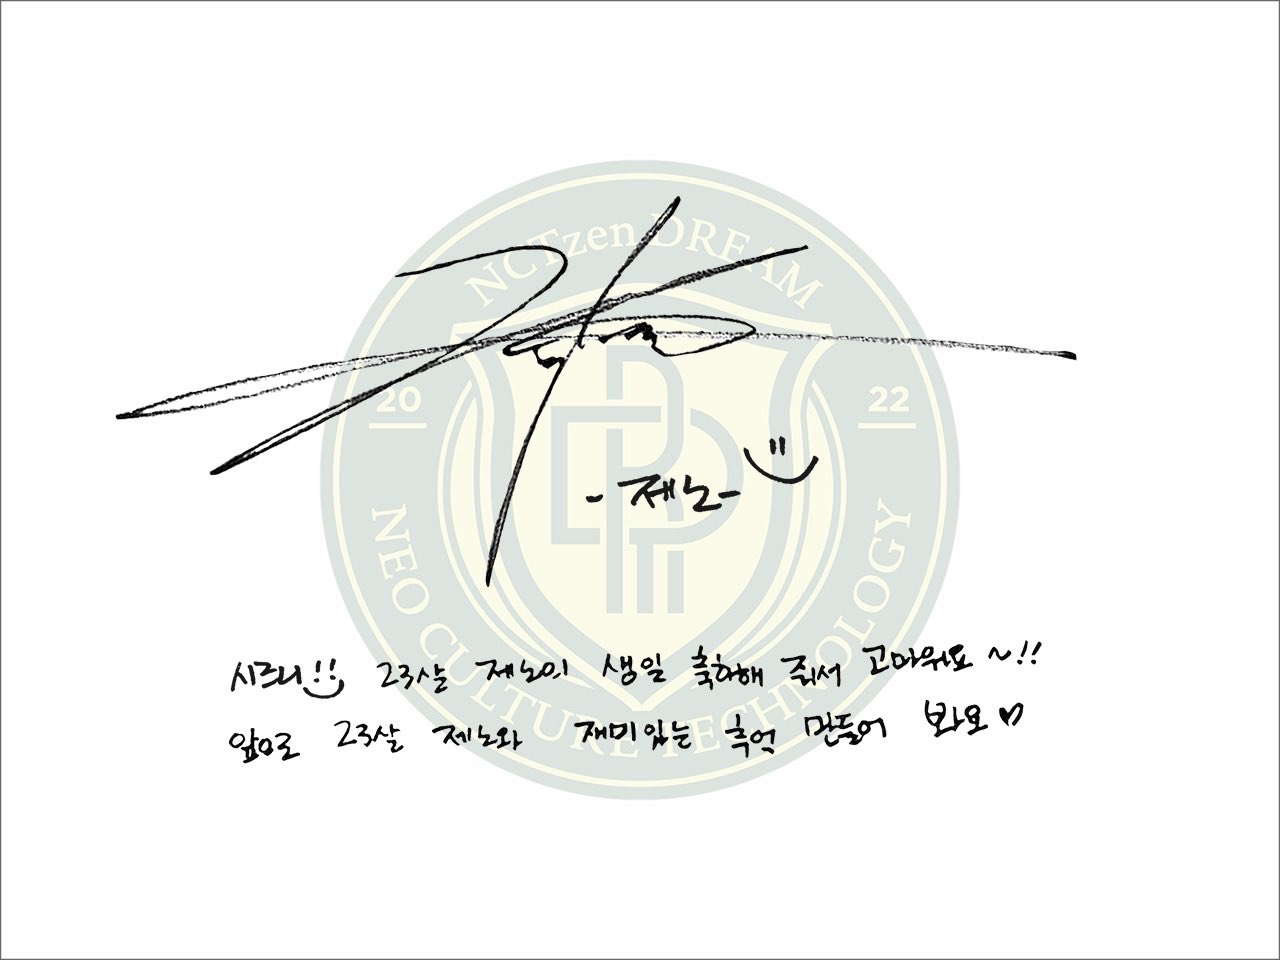 NCTzen DREAM
20 22
- 제노 -
NEO CULTURE TECHNOLOGY
시즈니!! 23살 제노의 생일 축하해 줘서 고마워요~!!
앞으로 23살 제노와 재미있는 추억 만들어 봐요♡